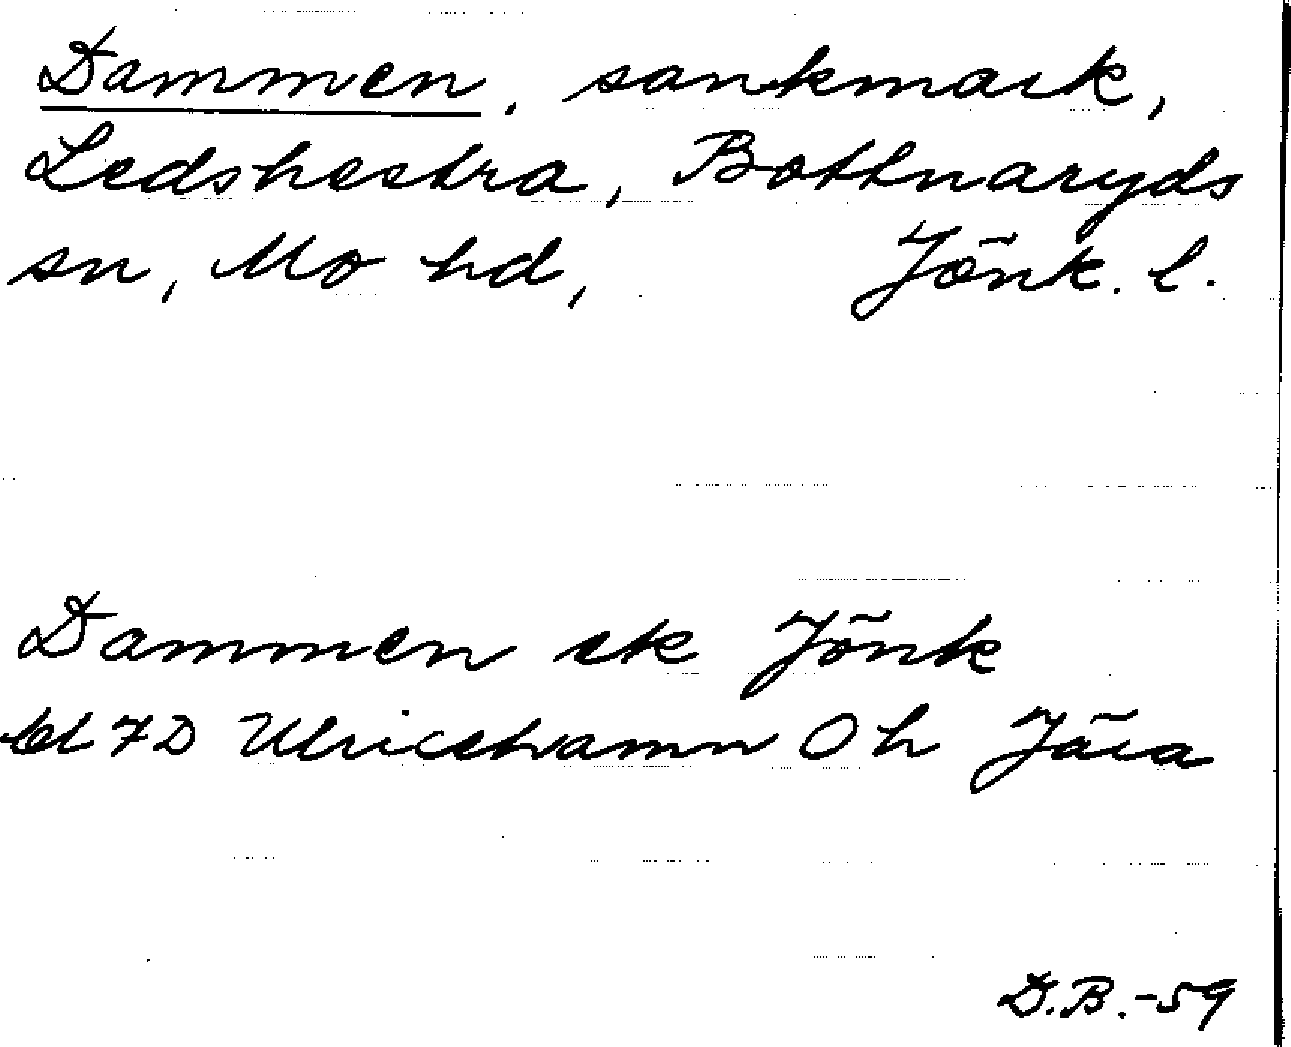 Dammen, sankmark,
Ledshestra, Bottnaryds
sn, Mo hd, Jönk. l.
Dammen ek Jönk
bl 7D Ulricehamn Oh Jära
D.B.-59